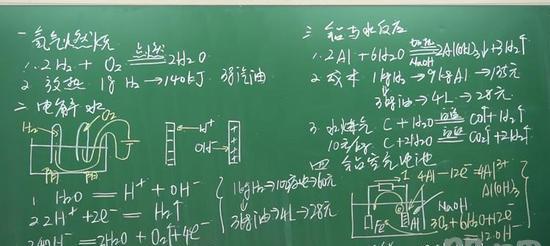 一 氢气燃烧
1. 2H₂ + O₂ 点燃 2H₂O
2 放热 1g H₂ → 140kJ 3g汽油
二 电解水
H₂ O₂
H⁺
OH⁻
Pt Pt
1 H₂O = H⁺ + OH⁻
2 2H⁺ + 2e⁻ = H₂↑
3 4OH⁻ = 2H₂O + O₂↑ + 4e⁻
1kg H₂ → 10元
3kg油 → 4L → 28元
三 铝与水反应
1. 2Al + 6H₂O NaOH 2Al(OH)₃↓ + 3H₂↑
2 成本 1kg H₂ → 9kg Al → 135元
3kg油 → 4L → 28元
3. 水煤气 C + H₂O 高温 CO↑ + H₂↑
10元/kg C + 2H₂O 高温 CO₂↑ + 2H₂↑
四 铝空气电池
4Al − 12e⁻ = 4Al³⁺
Al(OH)₃
NaOH
Al
3O₂ + 6H₂O + 12e⁻
= 12OH⁻